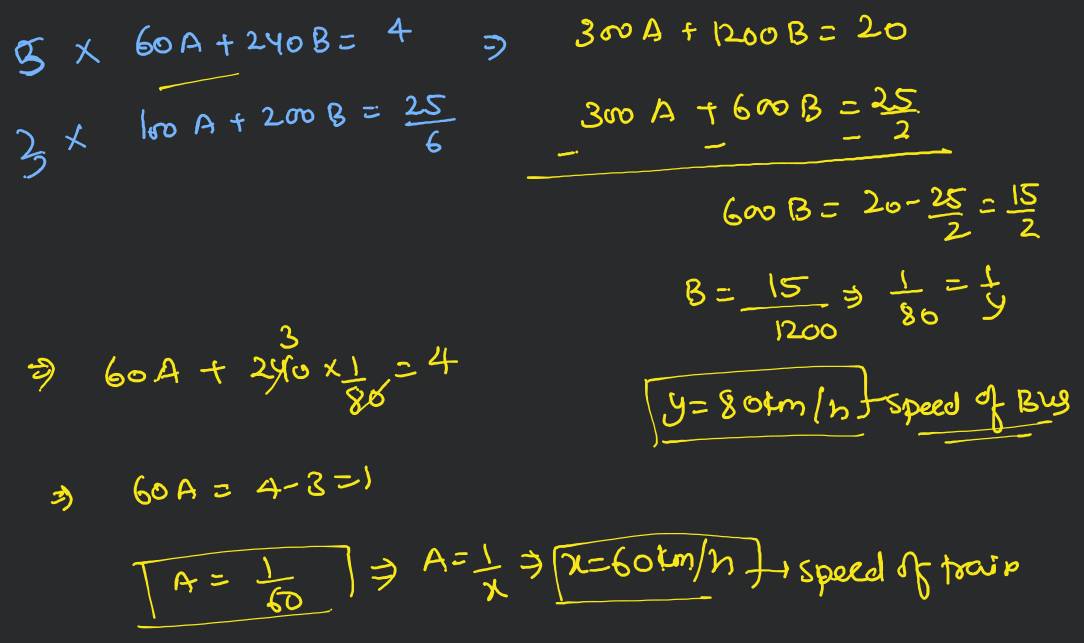 5 × 60A + 240B = 4 ⇒ 300A + 1200B = 20
3 × 100A + 200B = 25/6
300A + 600B = 25/2
- - -
600B = 20 - 25/2 = 15/2
B = 15/1200 ⇒ 1/80 = 1/y
y = 80km/h → speed of Bus
3
⇒ 60A + 240 × 1/80 = 4
⇒ 60A = 4 - 3 = 1
A = 1/60 ⇒ A = 1/x ⇒ x = 60km/h → speed of train